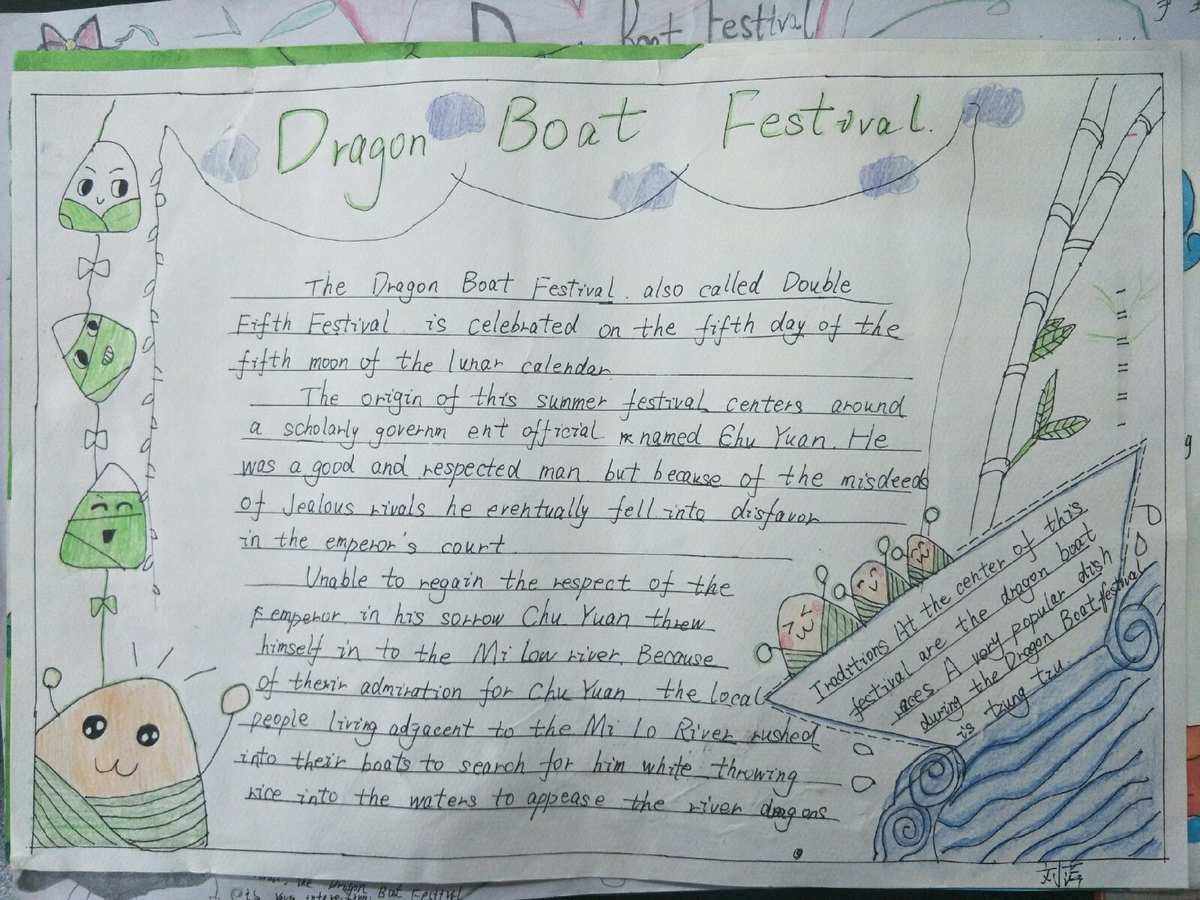 Boat Festival
Dragon Boat Festival.
The Dragon Boat Festival. also called Double
Fifth Festival is celebrated on the fifth day of the
fifth moon of the lunar calendar.
The origin of this summer festival centers around
a scholarly governm ent official named Chu Yuan. He
was a good and respected man but because of the misdeeds
of Jealous rivals he eventually fell into disfavor
in the emperor's court.
Unable to regain the respect of the
emperor in his sorrow Chu Yuan threw
himself in to the Mi Low river. Because
of their admiration for Chu Yuan the local
people living adjacent to the Mi Lo River rushed
into their boats to search for him white throwing
rice into the waters to appease the river dragons
Traditions At the center of this
festival are the dragon boat
races A very popular dish
during the Dragon Boat festival
is tzung tzu.
Dragon Boat Festival